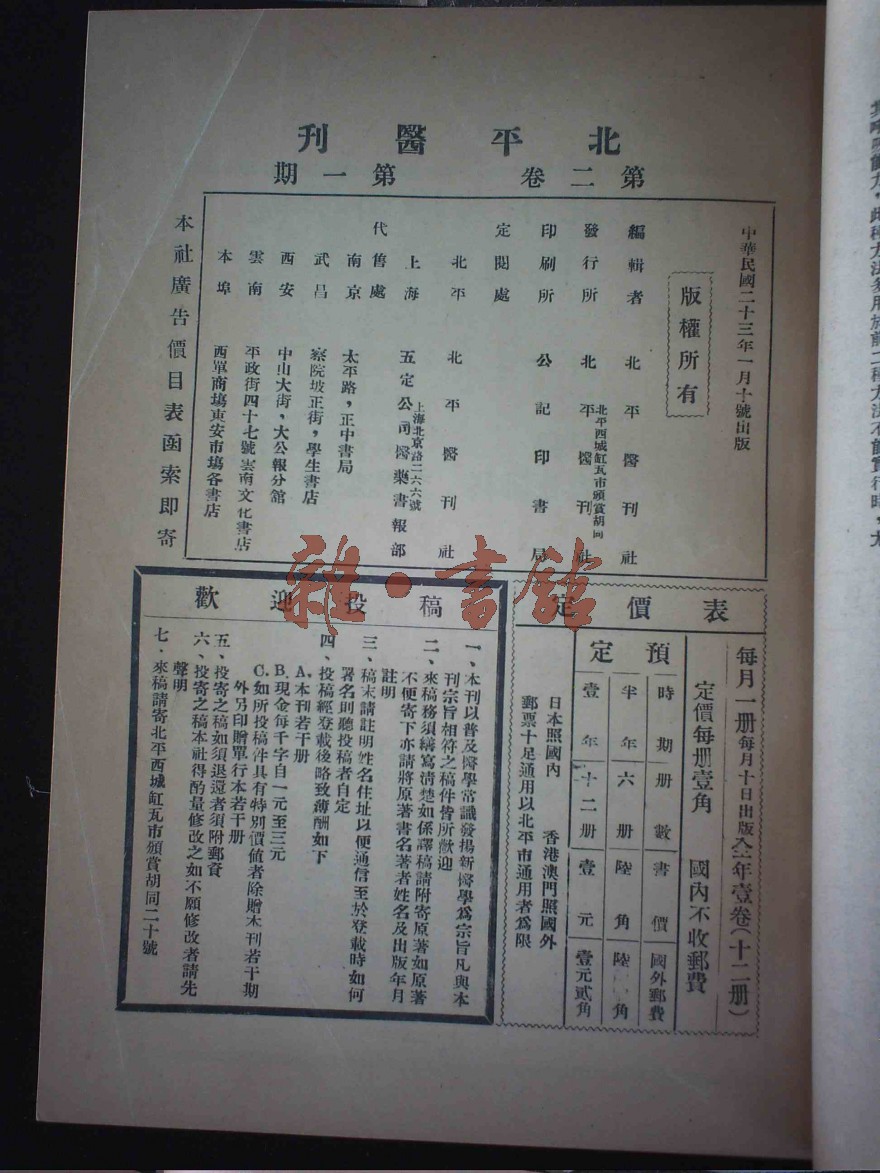 北平醫刊
第二卷 第一期
中華民國二十三年一月十號出版
版權所有
編輯者 北平醫刊社
發行所 北平醫刊社
北平西城缸瓦市頒賞胡同
印刷所 公記印書局
定閱處
北平 北平醫刊社
上海 五定公司醫藥書報部
上海北京路二六六號
代售處
南京 太平路，正中書局
武昌 察院坡正街，學生書店
西安 中山大街，大公報分館
雲南 平政街四十七號雲南文化書店
本埠 西單商場東安市場各書店
本社廣告價目表函索即寄
定價表
每月一册每月十日出版全年壹卷（十二册）
定價每册壹角 國內不收郵費
預定
時期 册數 書價 國外郵費
半年 六册 陸角 陸角
壹年 十二册 壹元 壹元貳角
日本照國內 香港澳門照國外
郵票十足通用以北平市通用者為限
歡迎投稿
一、本刊以普及醫學常識發揚新醫學為宗旨凡與本
刊宗旨相符之稿件皆所歡迎
二、來稿務須繕寫清楚如係譯稿請附寄原著如原著
不便寄下亦請將原著書名著者姓名及出版年月
註明
三、稿末請註明姓名住址以便通信至於登載時如何
署名則聽投稿者自定
四、投稿經登載後略致薄酬如下
A.本刊若干册
B.現金每千字自一元至三元
C.如所投稿件具有特別價值者除贈本刊若干期
外另印贈單行本若干册
五、投寄之稿如須退還者須附郵資
六、投寄之稿本社得酌量修改之如不願修改者請先
聲明
七、來稿請寄北平西城缸瓦市頒賞胡同二十號
雜·書館